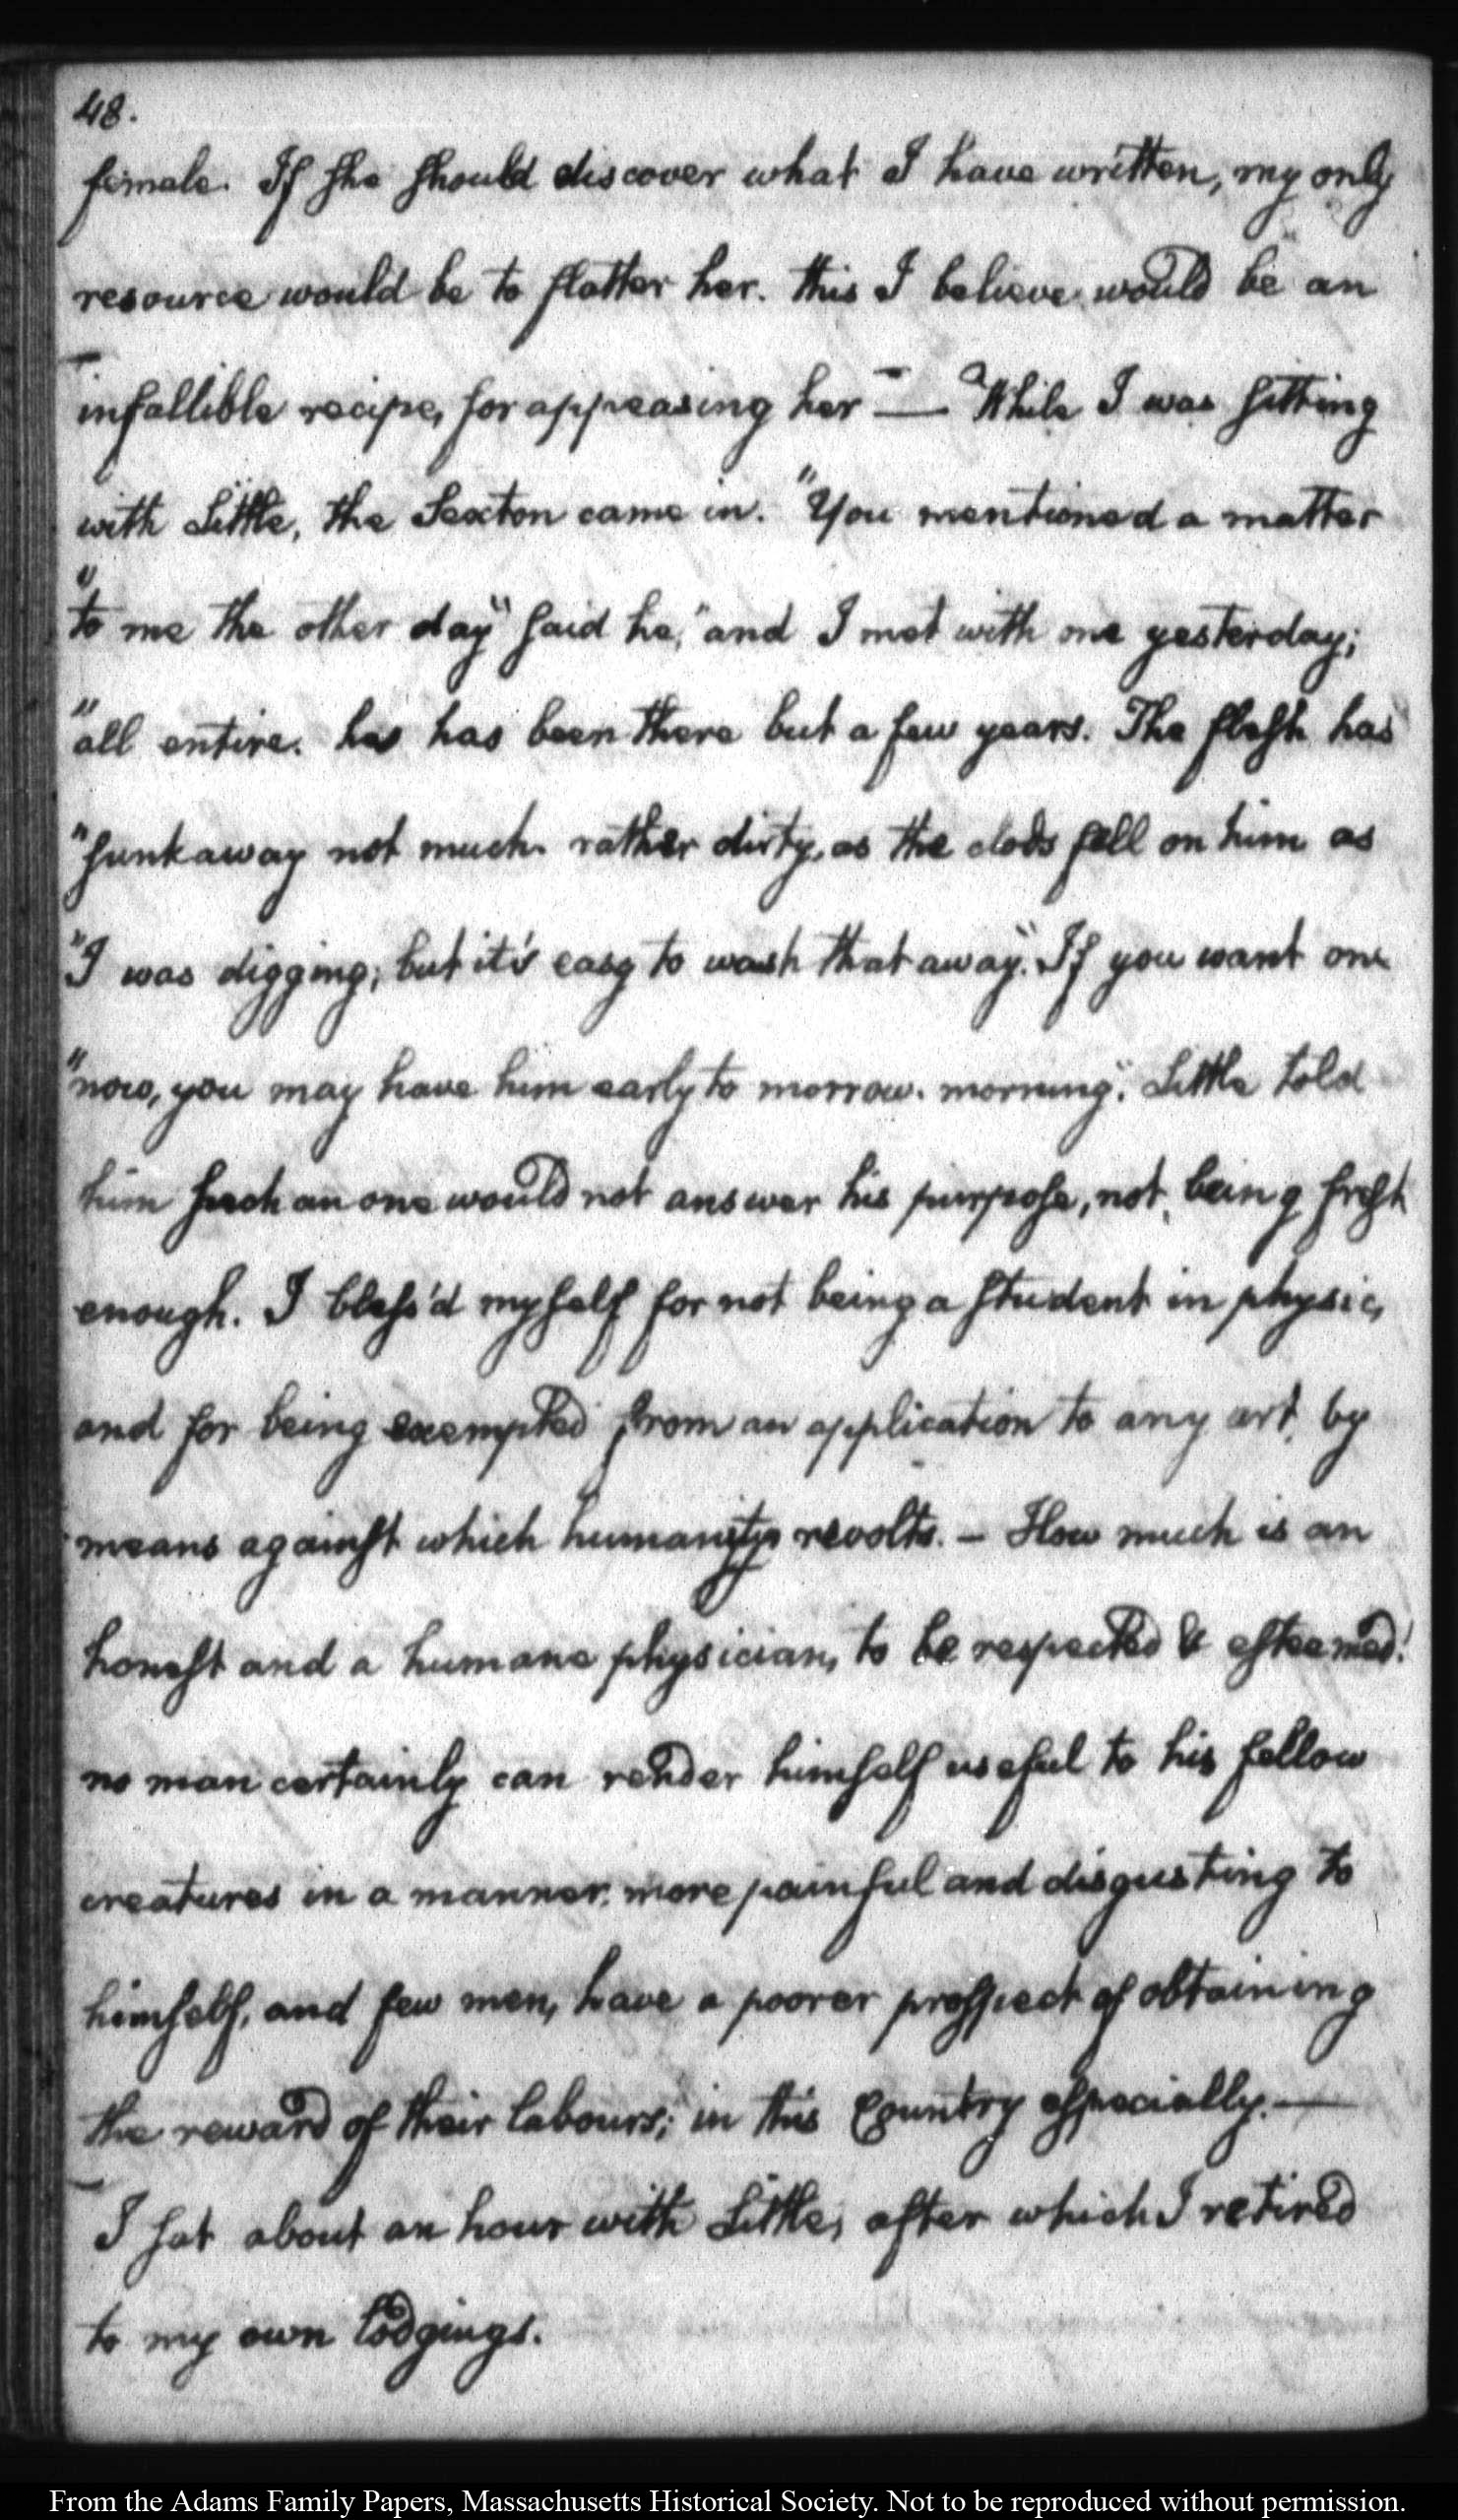 48.
female. If she should discover what I have written, my only
resource would be to flatter her. this I believe would be an
infallible recipe, for appeasing her — While I was sitting
with Little, the Sexton came in. "You mentioned a matter
"to me the other day" said he, "and I met with one yesterday;
"all entire. he has been there but a few years. The flesh has
"sunk away not much. rather dirty, as the clods fell on him as
"I was digging; but it's easy to wash that away." If you want one
"now, you may have him early to morrow. morning". Little told
him such an one would not answer his purpose, not being fresh
enough. I bless'd myself for not being a student in physic,
and for being exempted from an application to any art, by
means against which humanity revolts. — How much is an
honest and a humane physician, to be respected & esteemed!
no man certainly can render himself useful to his fellow
creatures in a manner, more painful and disgusting to
himself, and few men, have a poorer prospect of obtaining
the reward of their labours; in this Country especially. —
I sat about an hour with Little, after which I retired
to my own lodgings.
From the Adams Family Papers, Massachusetts Historical Society. Not to be reproduced without permission.